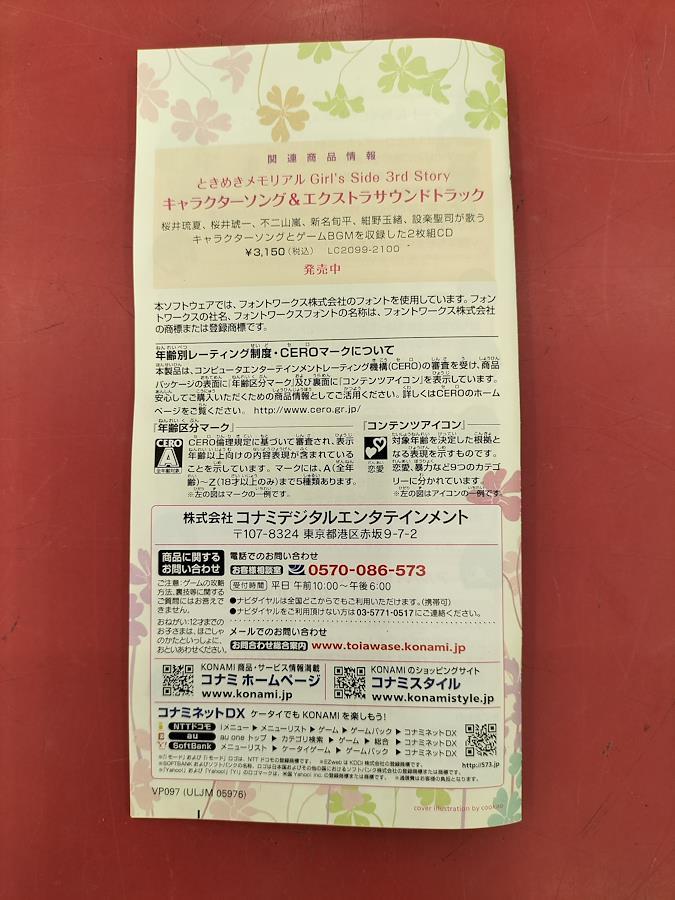 関連商品情報
ときめきメモリアル Girl's Side 3rd Story
キャラクターソング&エクストラサウンドトラック
桜井琉夏、桜井琥一、不二山嵐、新名旬平、紺野玉緒、設楽聖司が歌う
キャラクターソングとゲームBGMを収録した2枚組CD
¥3,150(税込) LC2099-2100
発売中
本ソフトウェアでは、フォントワークス株式会社のフォントを使用しています。フォン
トワークスの社名、フォントワークスフォントの名称は、フォントワークス株式会社
の商標または登録商標です。
年齢別レーティング制度・CEROマークについて
本製品は、コンピュータエンターテインメントレーティング機構(CERO)の審査を受け、商品
パッケージの表面に「年齢区分マーク」及び裏面に「コンテンツアイコン」を表示しています。
安心してご購入いただくための商品情報としてご活用ください。詳しくはCEROのホーム
ページをご覧ください。 http://www.cero.gr.jp/
「年齢区分マーク」
CERO
A
全年齢対象
CERO倫理規定に基づいて審査され、表示
年齢以上向けの内容表現が含まれている
ことを示しています。マークには、A(全年
齢)~Z(18才以上のみ)まで5種類あります。
※左の図はマークの一例です。
「コンテンツアイコン」
恋愛
対象年齢を決定した根拠と
なる表現を示すものです。
恋愛、暴力など9つのカテゴ
リーに分かれています。
※左の図はアイコンの一例です。
株式会社 コナミデジタルエンタテインメント
〒107-8324 東京都港区赤坂9-7-2
商品に関する
お問い合わせ
ご注意:ゲームの攻略
方法、裏技等に関する
ご質問にはお答えで
きません。
おねがい:12才までの
お子さまは、ほごしゃ
のかたといっしょに、
おといあわせください。
電話でのお問い合わせ
お客様相談室 0570-086-573
受付時間 平日 午前10:00~午後6:00
●ナビダイヤルは全国どこからでもご利用いただけます。(携帯可)
●ナビダイヤルをご利用頂けない方は03-5771-0517にご連絡ください。
メールでのお問い合わせ
お問合わせ総合案内 www.toiawase.konami.jp
KONAMI 商品・サービス情報満載
コナミ ホームページ
www.konami.jp
KONAMIのショッピングサイト
コナミスタイル
www.konamistyle.jp
コナミネットDX ケータイでも KONAMI を楽しもう!
NTTドコモ iメニュー ▶ メニューリスト ▶ ゲーム ▶ ゲームパック ▶ コナミネットDX
au au one トップ ▶ カテゴリ検索 ▶ ゲーム ▶ 総合 ▶ コナミネットDX
SoftBank メニューリスト ▶ ケータイゲーム ▶ ゲームパック ▶ コナミネットDX
http://573.jp
※「iモード」および「iモード」ロゴは、NTT ドコモの登録商標です。 ※EZwebは KDDI 株式会社の登録商標です。
※SOFTBANKおよびソフトバンクの名称、ロゴは日本国およびその他の国におけるソフトバンク株式会社の登録商標または商標です。
※「Yahoo!」および「Yahoo!」「Y!」のロゴマークは、米国 Yahoo! Inc. の登録商標または商標です。 ※通信費はお客様の負担となります。
VP097 (ULJM 05976)
cover illustration by cookao